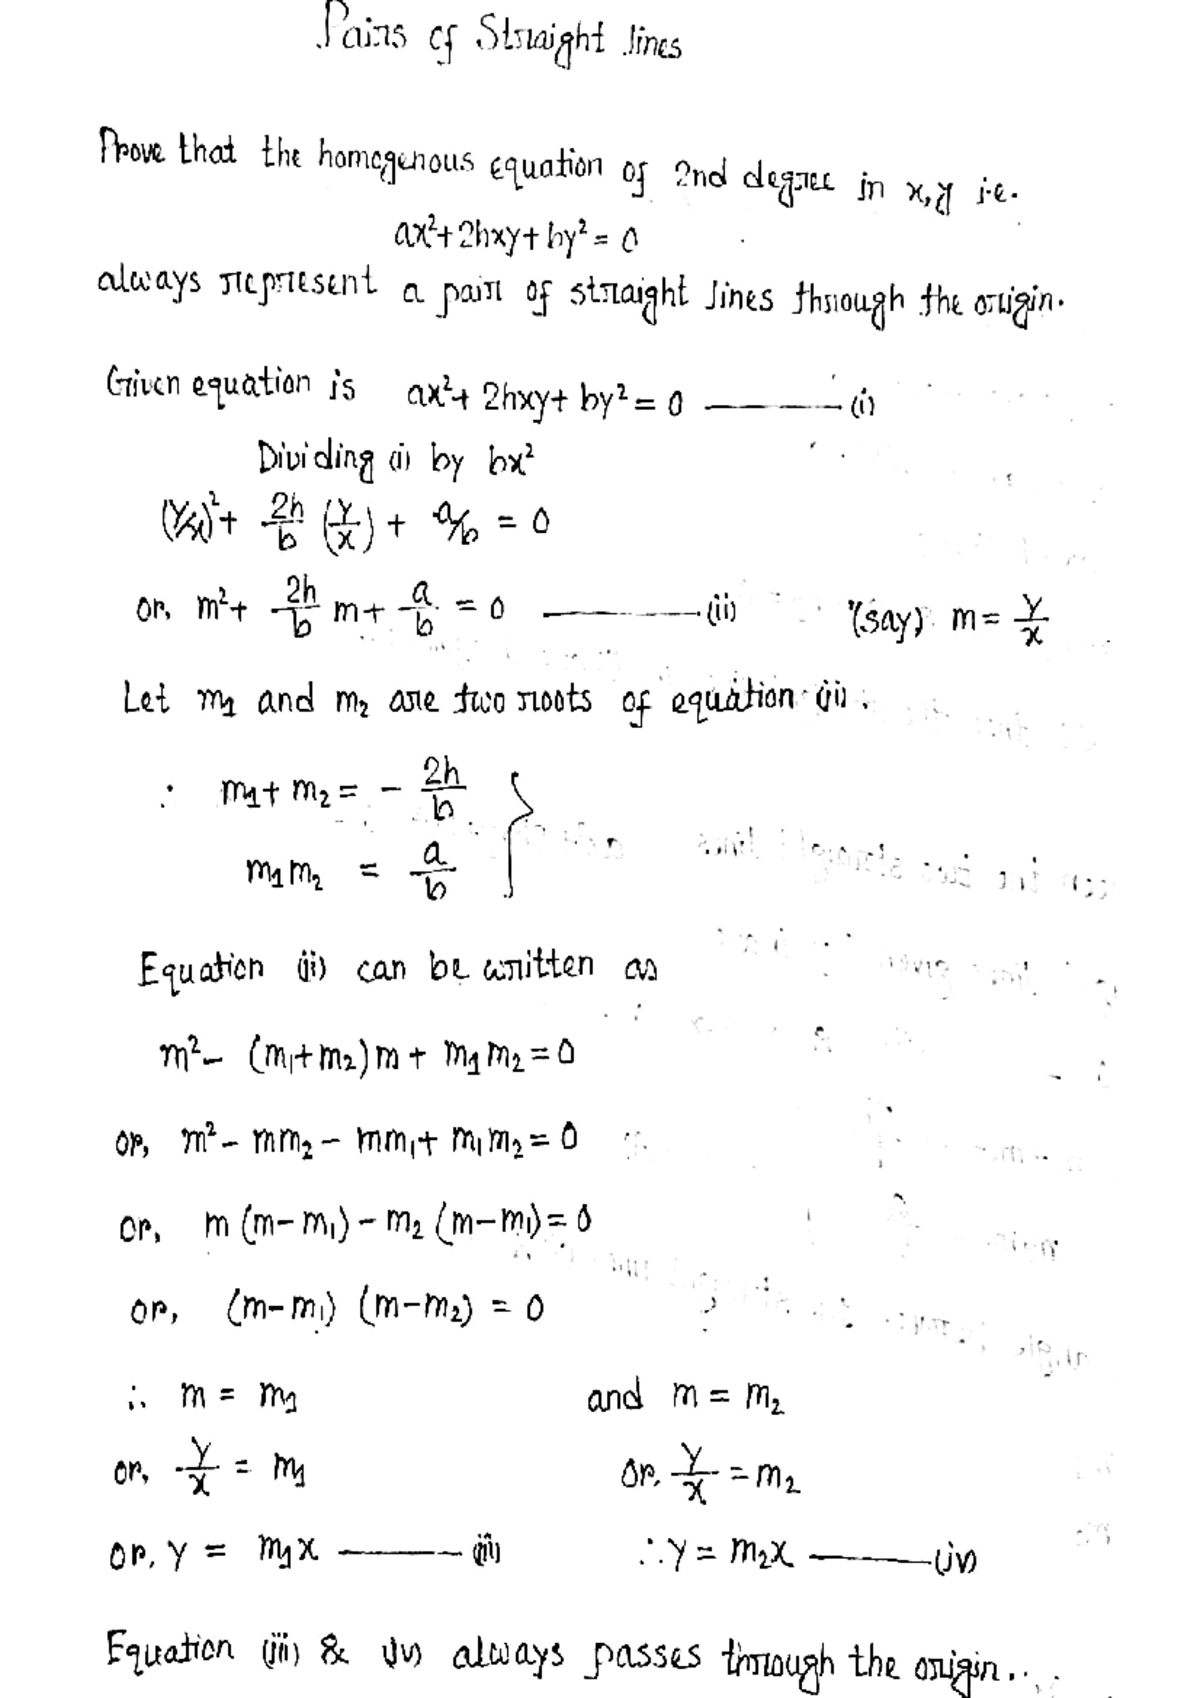 Pairs of Straight lines
Prove that the homogenous equation of 2nd degree in x, y i.e.
ax²+2hxy+by²=0
always represent a pair of straight lines through the origin.
Given equation is ax²+2hxy+by²=0 ———(i)
Dividing (i) by bx²
(y/x)²+ 2h/b (y/x) + a/b = 0
or, m²+ 2h/b m+ a/b = 0 ———(ii) (say) m= y/x
Let m₁ and m₂ are two roots of equation (ii).
∴ m₁+m₂ = - 2h/b }
m₁m₂ = a/b
Equation (ii) can be written as
m²- (m₁+m₂)m+ m₁m₂=0
or, m²-mm₂-mm₁+m₁m₂=0
or, m(m-m₁)-m₂(m-m₁)=0
or, (m-m₁) (m-m₂) = 0
∴ m = m₁ and m = m₂
or, y/x = m₁ or, y/x = m₂
or, y = m₁x ———(iii) ∴y = m₂x ———(iv)
Equation (iii) & (iv) always passes through the origin..